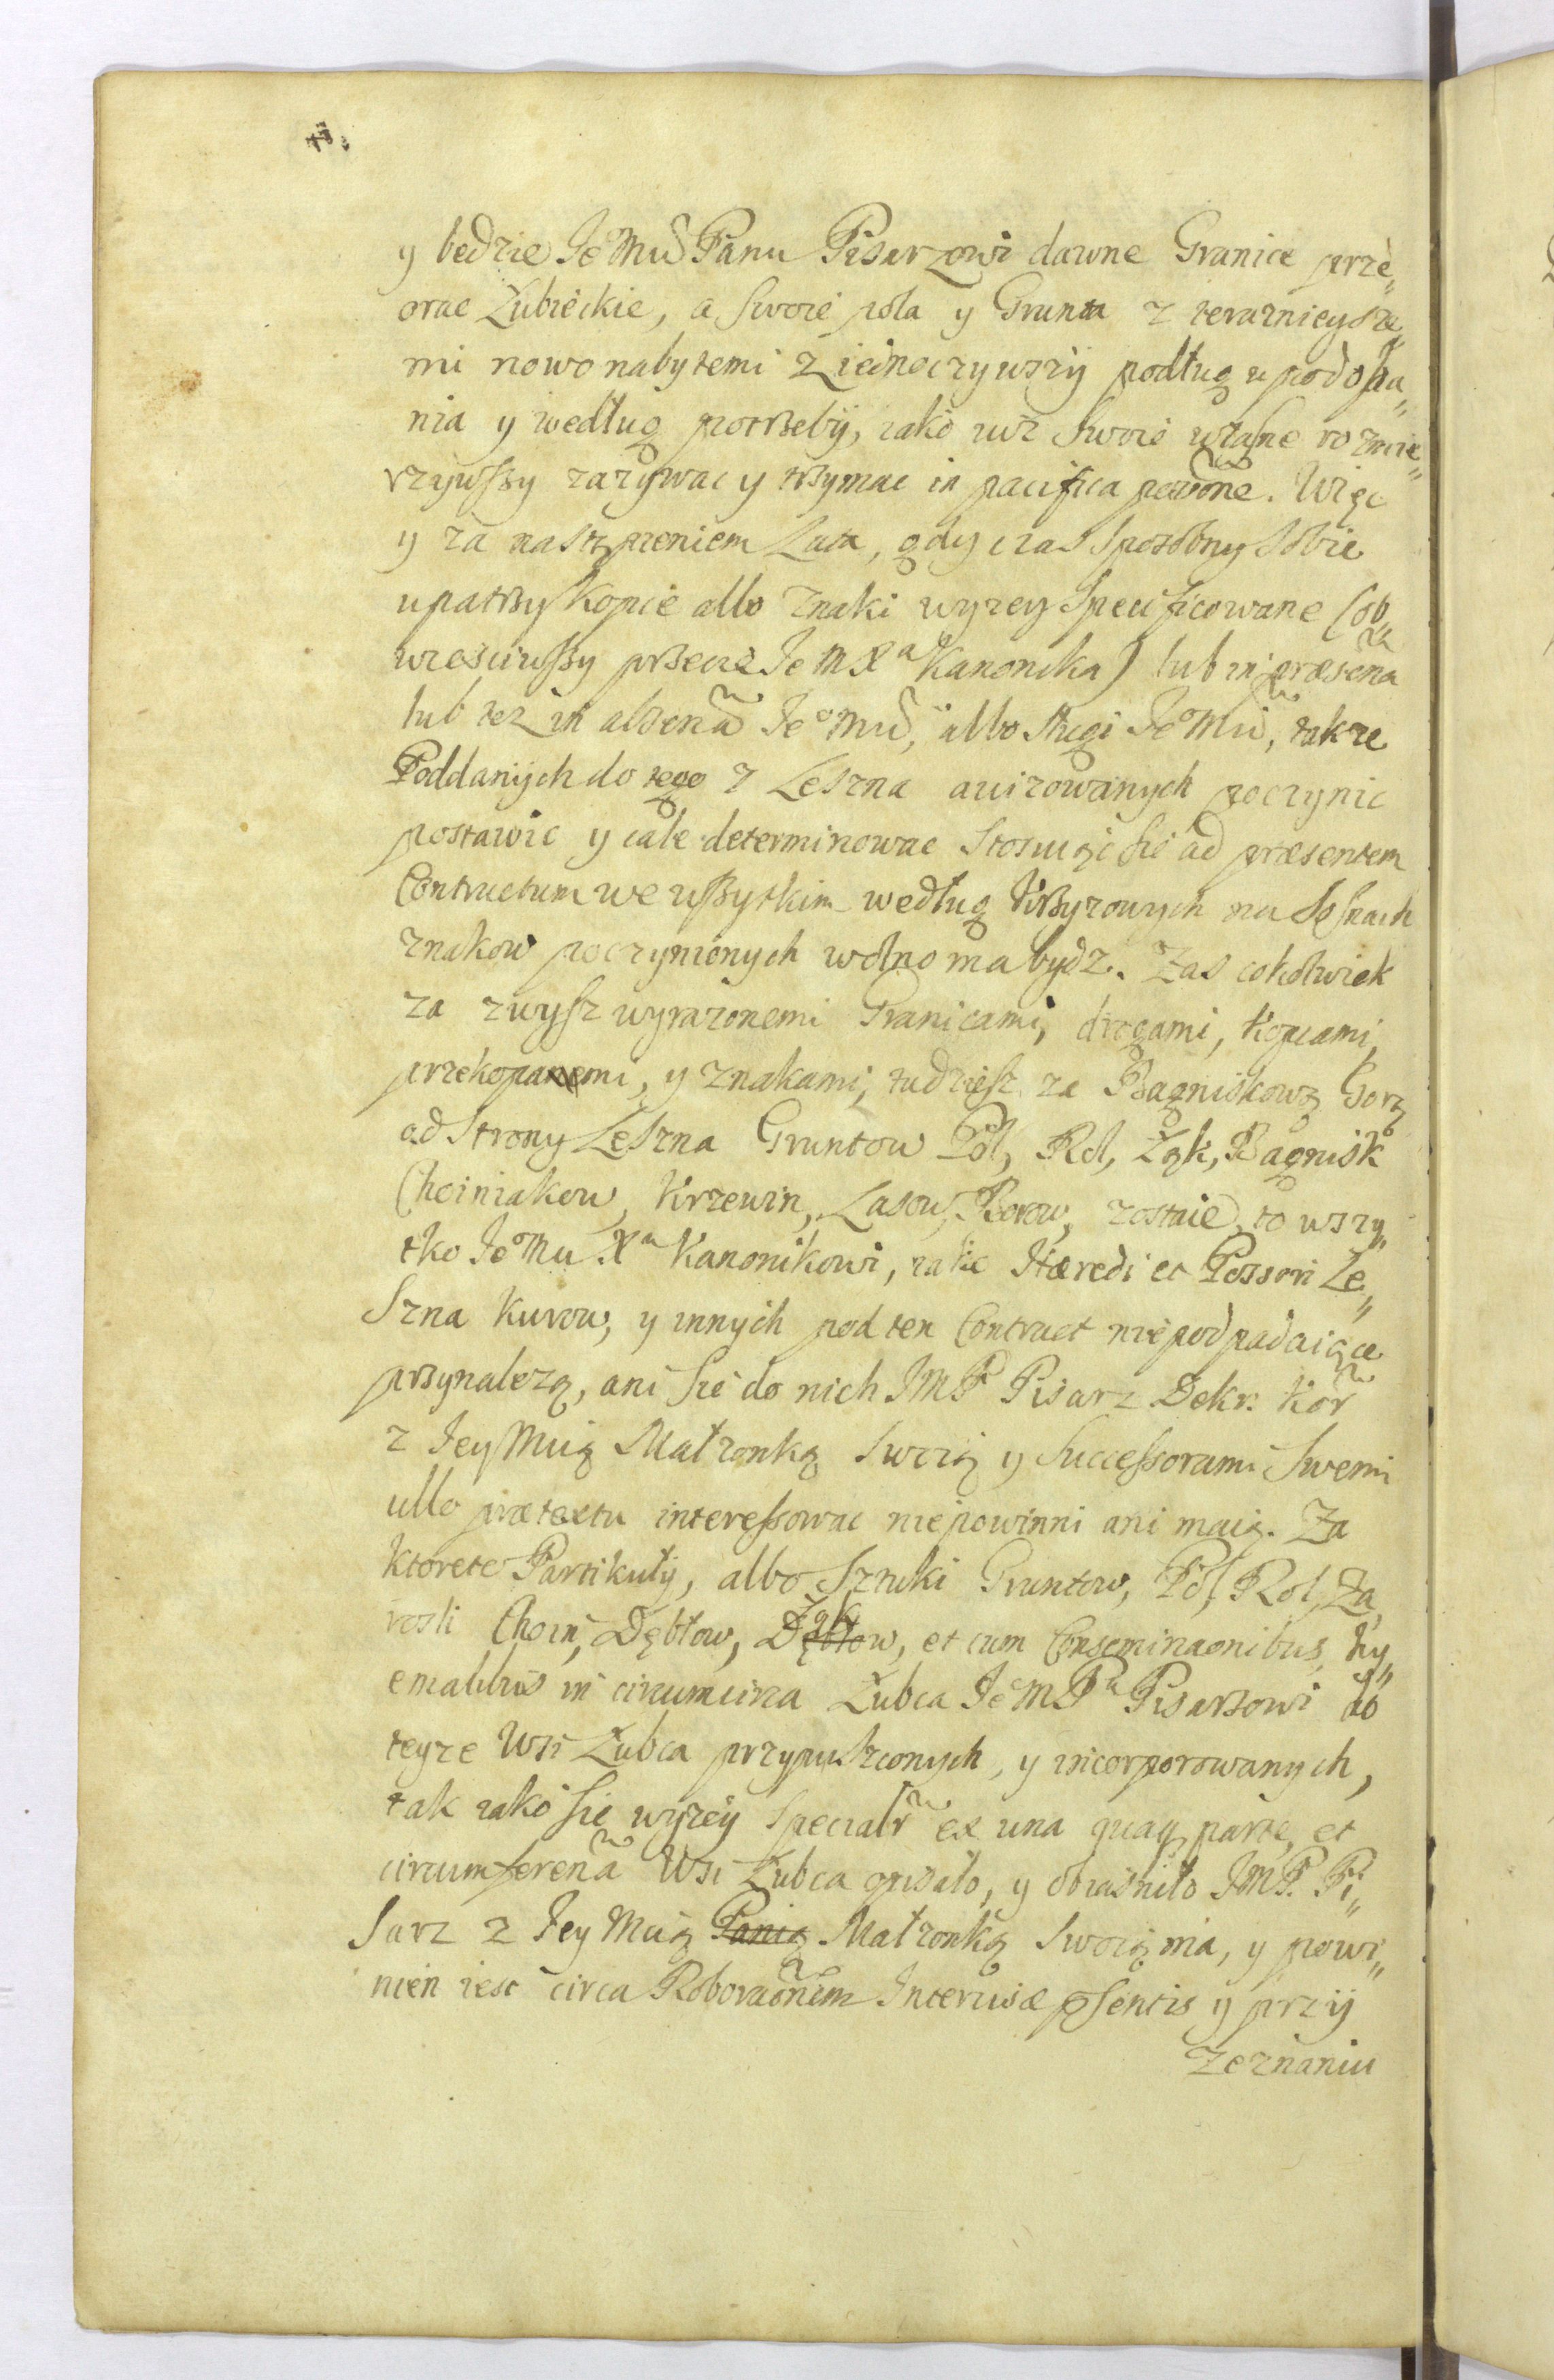 y bedzie Jeo Mu Panu Pisarzowi dawne Granice prze„
orac Łubieckie, a swoie pola y Grunta z terazniejsze„
mi nowo nabytemi ziednoczywszÿ podług upodoba„
nia y według potrzebÿ, iako iuż Swoie własne rozmie„
rzywszy zazywac y trzymac in pacifica poeone. Więc
y za nastąpieniem Lata, gdy czas sposobny sobie
upatrzy Kopce albo znaki wyzey specificowane (ob„
wiesciwszy przecie Je M Xa Kanonika) lub in præsena
lub tez in absena Jeo Mu, albo sługi Jeo Mu, takze
Poddanÿch do tego z Leszna awizowanych poczynic
postawic y cale determinowac stosuiąc sie ad præsentem
Contractum we wszytkim według Krzyzowych na Sosnach
znakow poczynionych wolno ma bydz. Zas cokolwiek
za zwysz wyrazonemi Granicami, drogami, Kopcami,
przekopanemi, y znakami, tudziesz za Bagniskową Gorą
od Strony Leszna Gruntow Pol, Rol, Łąk, Bagnisk
Choiniakow, Krzewin, Lasow, Borow, zostaie, to wszy„
tko Jeo Mu Xu Kanonikowi, iako Hæredi et Possori Le„
szna Kurow, y innych pod ten Contract nie podpadaiące
przynalezą, ani sie do nich JMP Pisarz Dekr: Kor
z Jey Mcią Małzonką swoią y Successorami Swemi
ullo prætextu interessowac niepowinni ani maią. Za
ktorete Partikułÿ, albo Sztuki Gruntow, Pol, Rol, Za„
rosli Choin, Dębłow, Łąk Dębłow, et cum Conseminaonibus, hy„
emalibus in circumcirca Łubca Je M Pu Pisarzowi do
teyze Wsi Łubca przypuszczonych, y incorporowanych,
tak iako sie wyzeÿ specialr ex una quaq parte, et
circumferena Wsi Łubca opisało, y obiasniło JMP. Pi„
sarz z Jey Mcią Panią Małzonką Swoią ma, y powi„
nien iest circa Roboraonem Intercisæ psentis y przÿ
zeznaniu